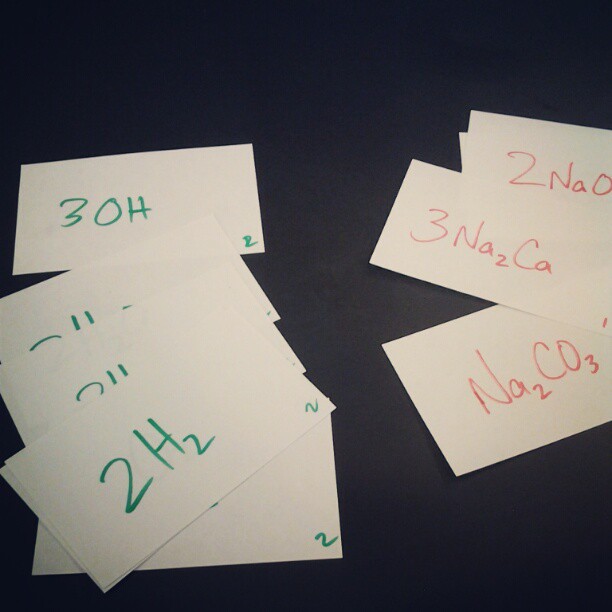 3OH
2
2
2H₂
2
2NaO
3Na₂Ca
Na₂CO₃